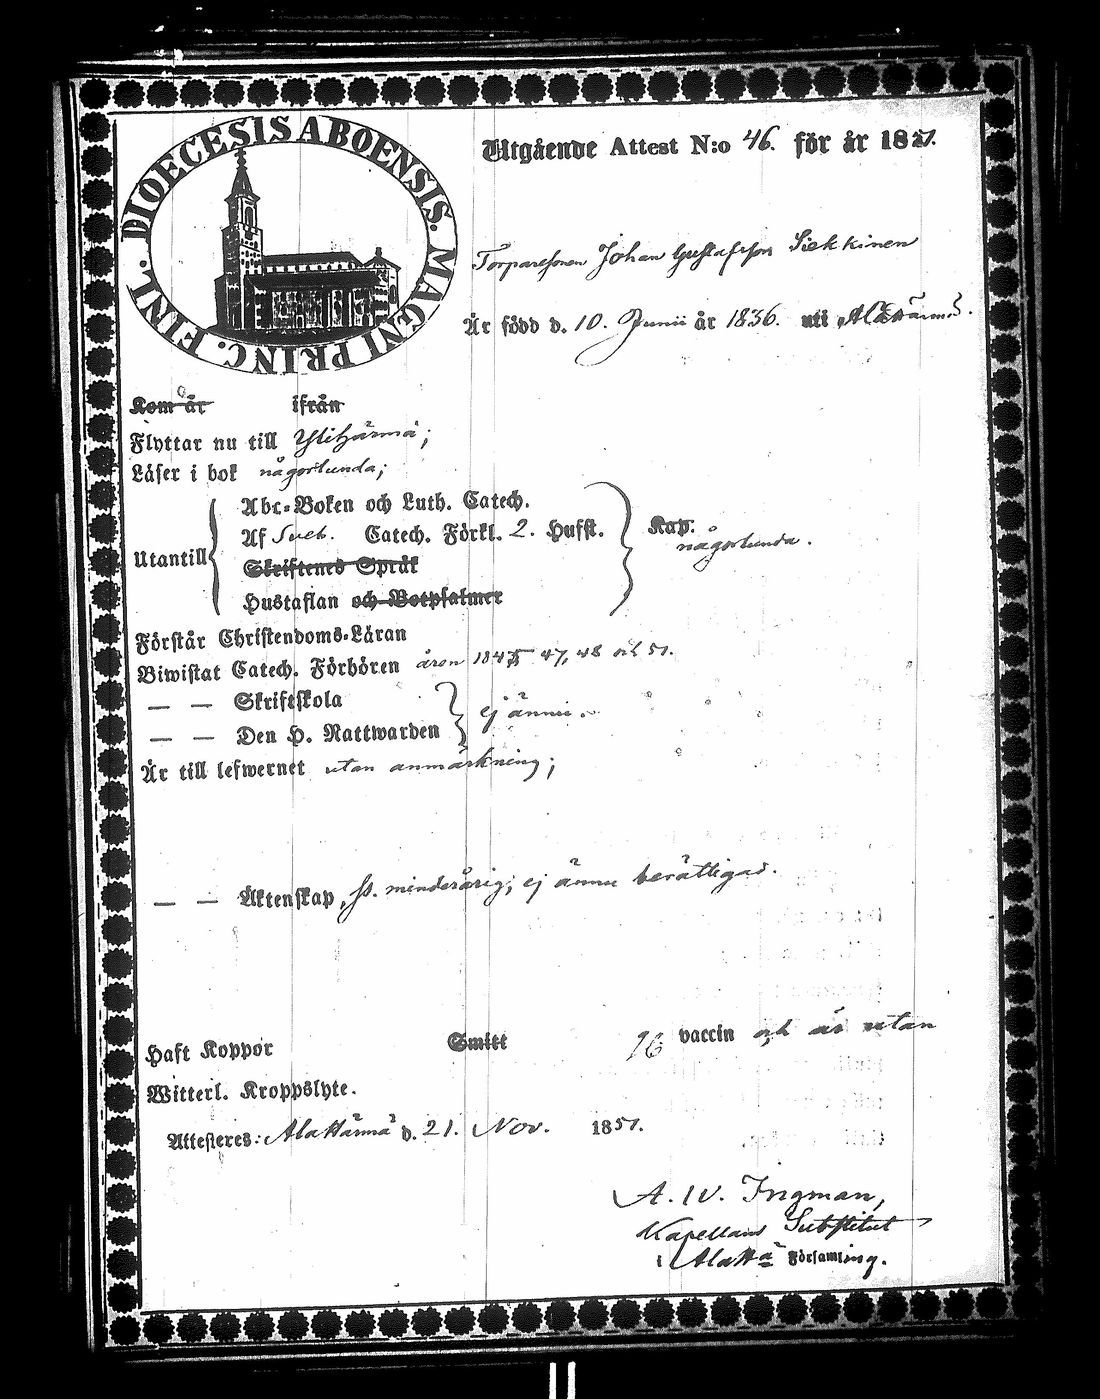 DIOECESIS ABOENSIS. MAGNI PRINC. FINL.
Utgående Attest N:o 46. för år 1851.
Torparesonen Johan Gustafsson Siekkinen
Är född d. 10. Junii år 1836. uti Alahärmä.
Kom år ifrån
Flyttar nu till Ylihärmä;
Läser i bok någorlunda;
Abc-Boken och Luth. Catech.
Af Sveb. Catech. Förkl. 2. Hufst.
Utantill
Kap.
någorlunda.
Skriftenes Språk
Hustaflan och Botpsalmer
Förstår Christendoms-Läran
Biwistat Catech. Förhören åren 1845 47, 48 och 51.
— — Skriftskola
ej ännu.
— — Den H. Nattwarden
Är till lefwernet utan anmärkning;
— — Äktenskap, minderårig; ej ännu berättigad.
Haft Koppor Smitt vaccin och är utan
Witterl. Kroppslyte.
Attesteres: Alahärmä d. 21. Nov. 1851.
A. W. Ingman,
Kapellans Substitut
i Församling.